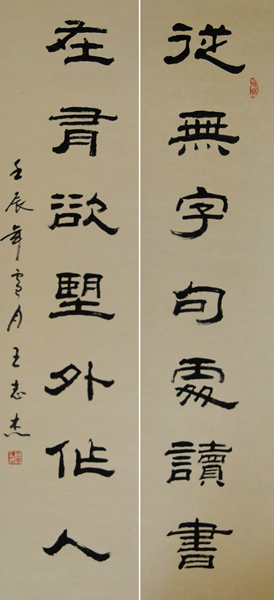 從無字句處讀書
在有欲朢外作人
壬辰年雪月王志杰